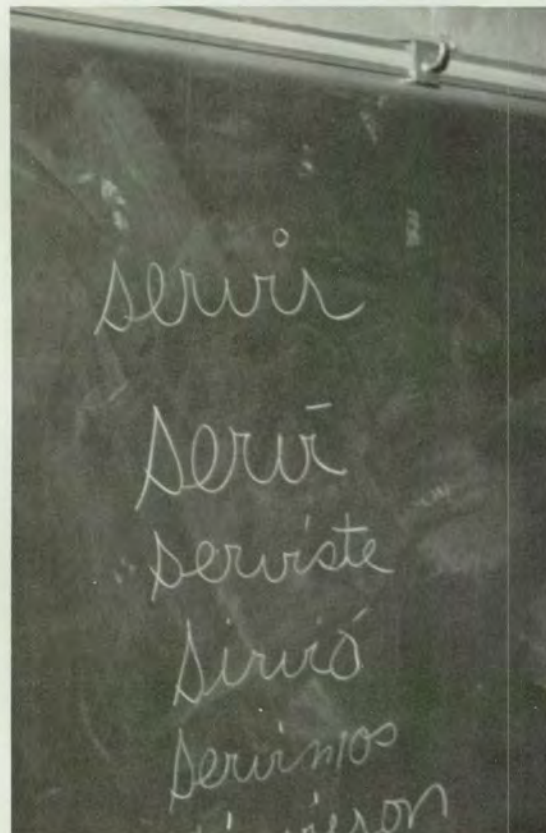 servir
serví
serviste
sirvió
servimos